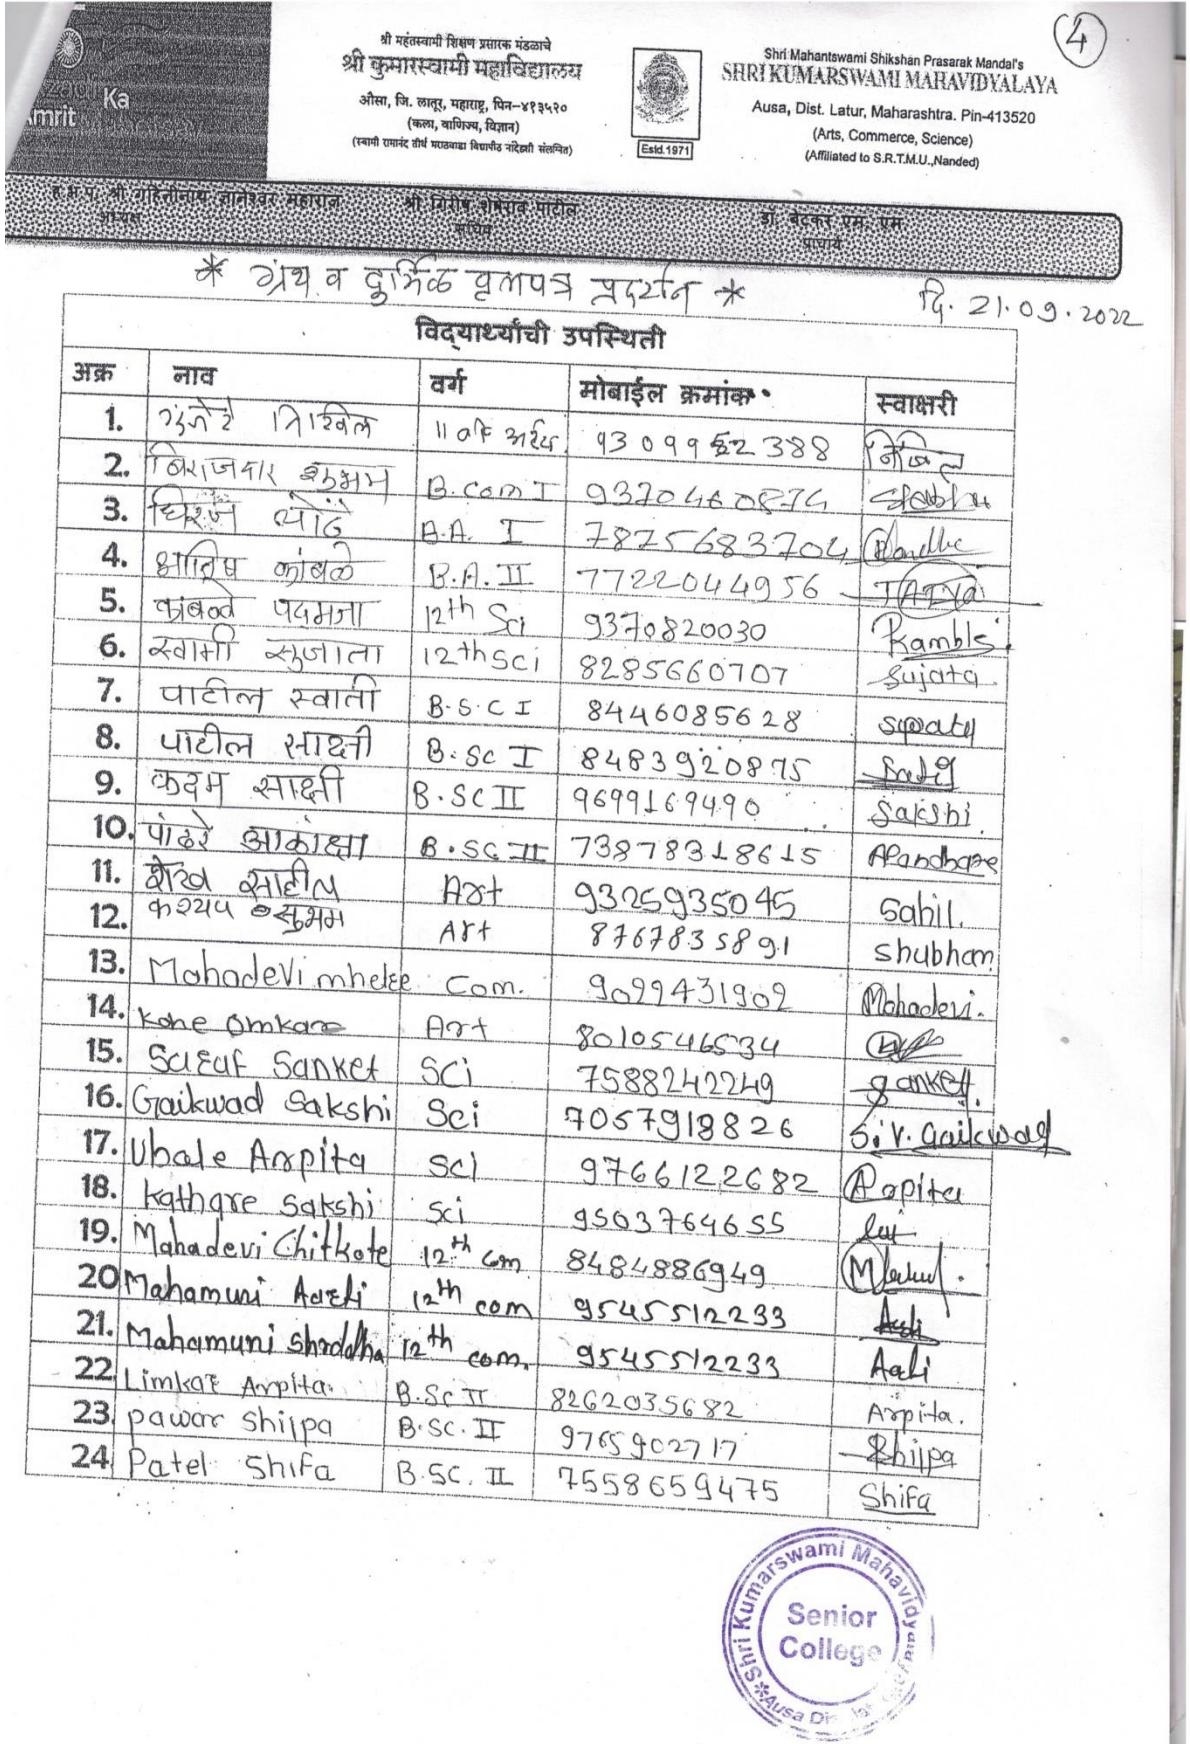 4
Ka
Amrit
श्री महंतस्वामी शिक्षण प्रसारक मंडळाचे
श्री कुमारस्वामी महाविद्यालय
औसा, जि. लातूर, महाराष्ट्र, पिन-४१३५२०
(कला, वाणिज्य, विज्ञान)
(स्वामी रामानंद तीर्थ मराठवाडा विद्यापीठ नांदेडशी संलग्नित)
Estd.1971
Shri Mahantswami Shikshan Prasarak Mandal's
SHRI KUMARSWAMI MAHAVIDYALAYA
Ausa, Dist. Latur, Maharashtra. Pin-413520
(Arts, Commerce, Science)
(Affiliated to S.R.T.M.U.,Nanded)
ह.भ.प. श्री गहिनीनाथ ज्ञानेश्वर महाराज श्री गिरीष शेषराव पाटील डॉ. बेटकर एम. एम.
अध्यक्ष सचिव प्राचार्य
* ग्रंथ व दुर्मिळ वृत्तपत्र प्रदर्शन * दि. 21.09.2022
विद्यार्थ्यांची उपस्थिती
अक्र नाव वर्ग मोबाईल क्रमांक स्वाक्षरी
1. निखिल 11 वी निखिल
2. बिराजदार शुभम B.Com I 9370460874
3. धिरज लोंढे B.A. I 7875683704
4. कांबळे B.A. II 7722044956
5. कांबळे पदमजा 12th Sci 9370820030 Kamble
6. स्वामी सुजाता 12th sci 8285660707 Sujata
7. पाटील स्वाती B.S.C I 8446085628 swaty
8. पाटील साक्षी B.Sc I 8483920875
9. कदम साक्षी B.SC II 9699169490 Sakshi
10. पांढरे आकांक्षा B.SC II 73878318615 APandhare
11. शेख साहील Art 9325935045 Sahil.
12. कश्यप शुभम Art 8767835891 Shubham
13. Mahadevi mhetre Com. 9022431902 Mahadevi.
14. Kohe Omkar Art 8010546534
15. Sanket SCi 7588242249 Sanket.
16. Gaikwad Sakshi Sci 7057918826 S.V. Gaikwad
17. Ubale Arpita Sci 9766122682 Arpita
18. Kathare Sakshi Sci 9503764655
19. Mahadevi Chitkote 12th Com 8484886949
20 Mahamuni Aarti 12th com 9545512233
21. Mahamuni Shraddha 12th com. 9545512233
22 Limkar Arpita. B.Sc II 8262035682 Arpita.
23. pawar Shilpa B.SC. II 9765902717 Shilpa
24 Patel Shifa B.SC. II 7558659475 Shifa
Shri Kumarswami Mahavidyalaya
Senior
College